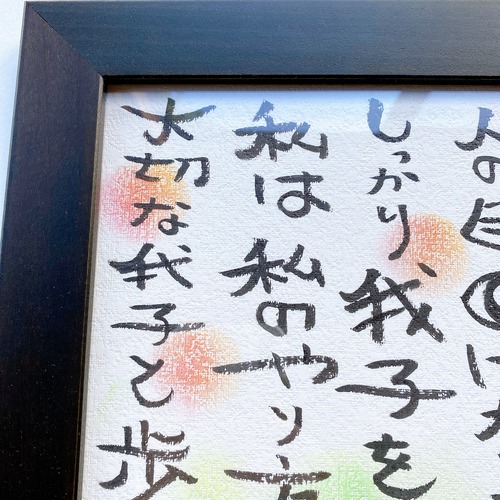 人の目
しっかり我子を
私は私のやり方
大切な我子と歩